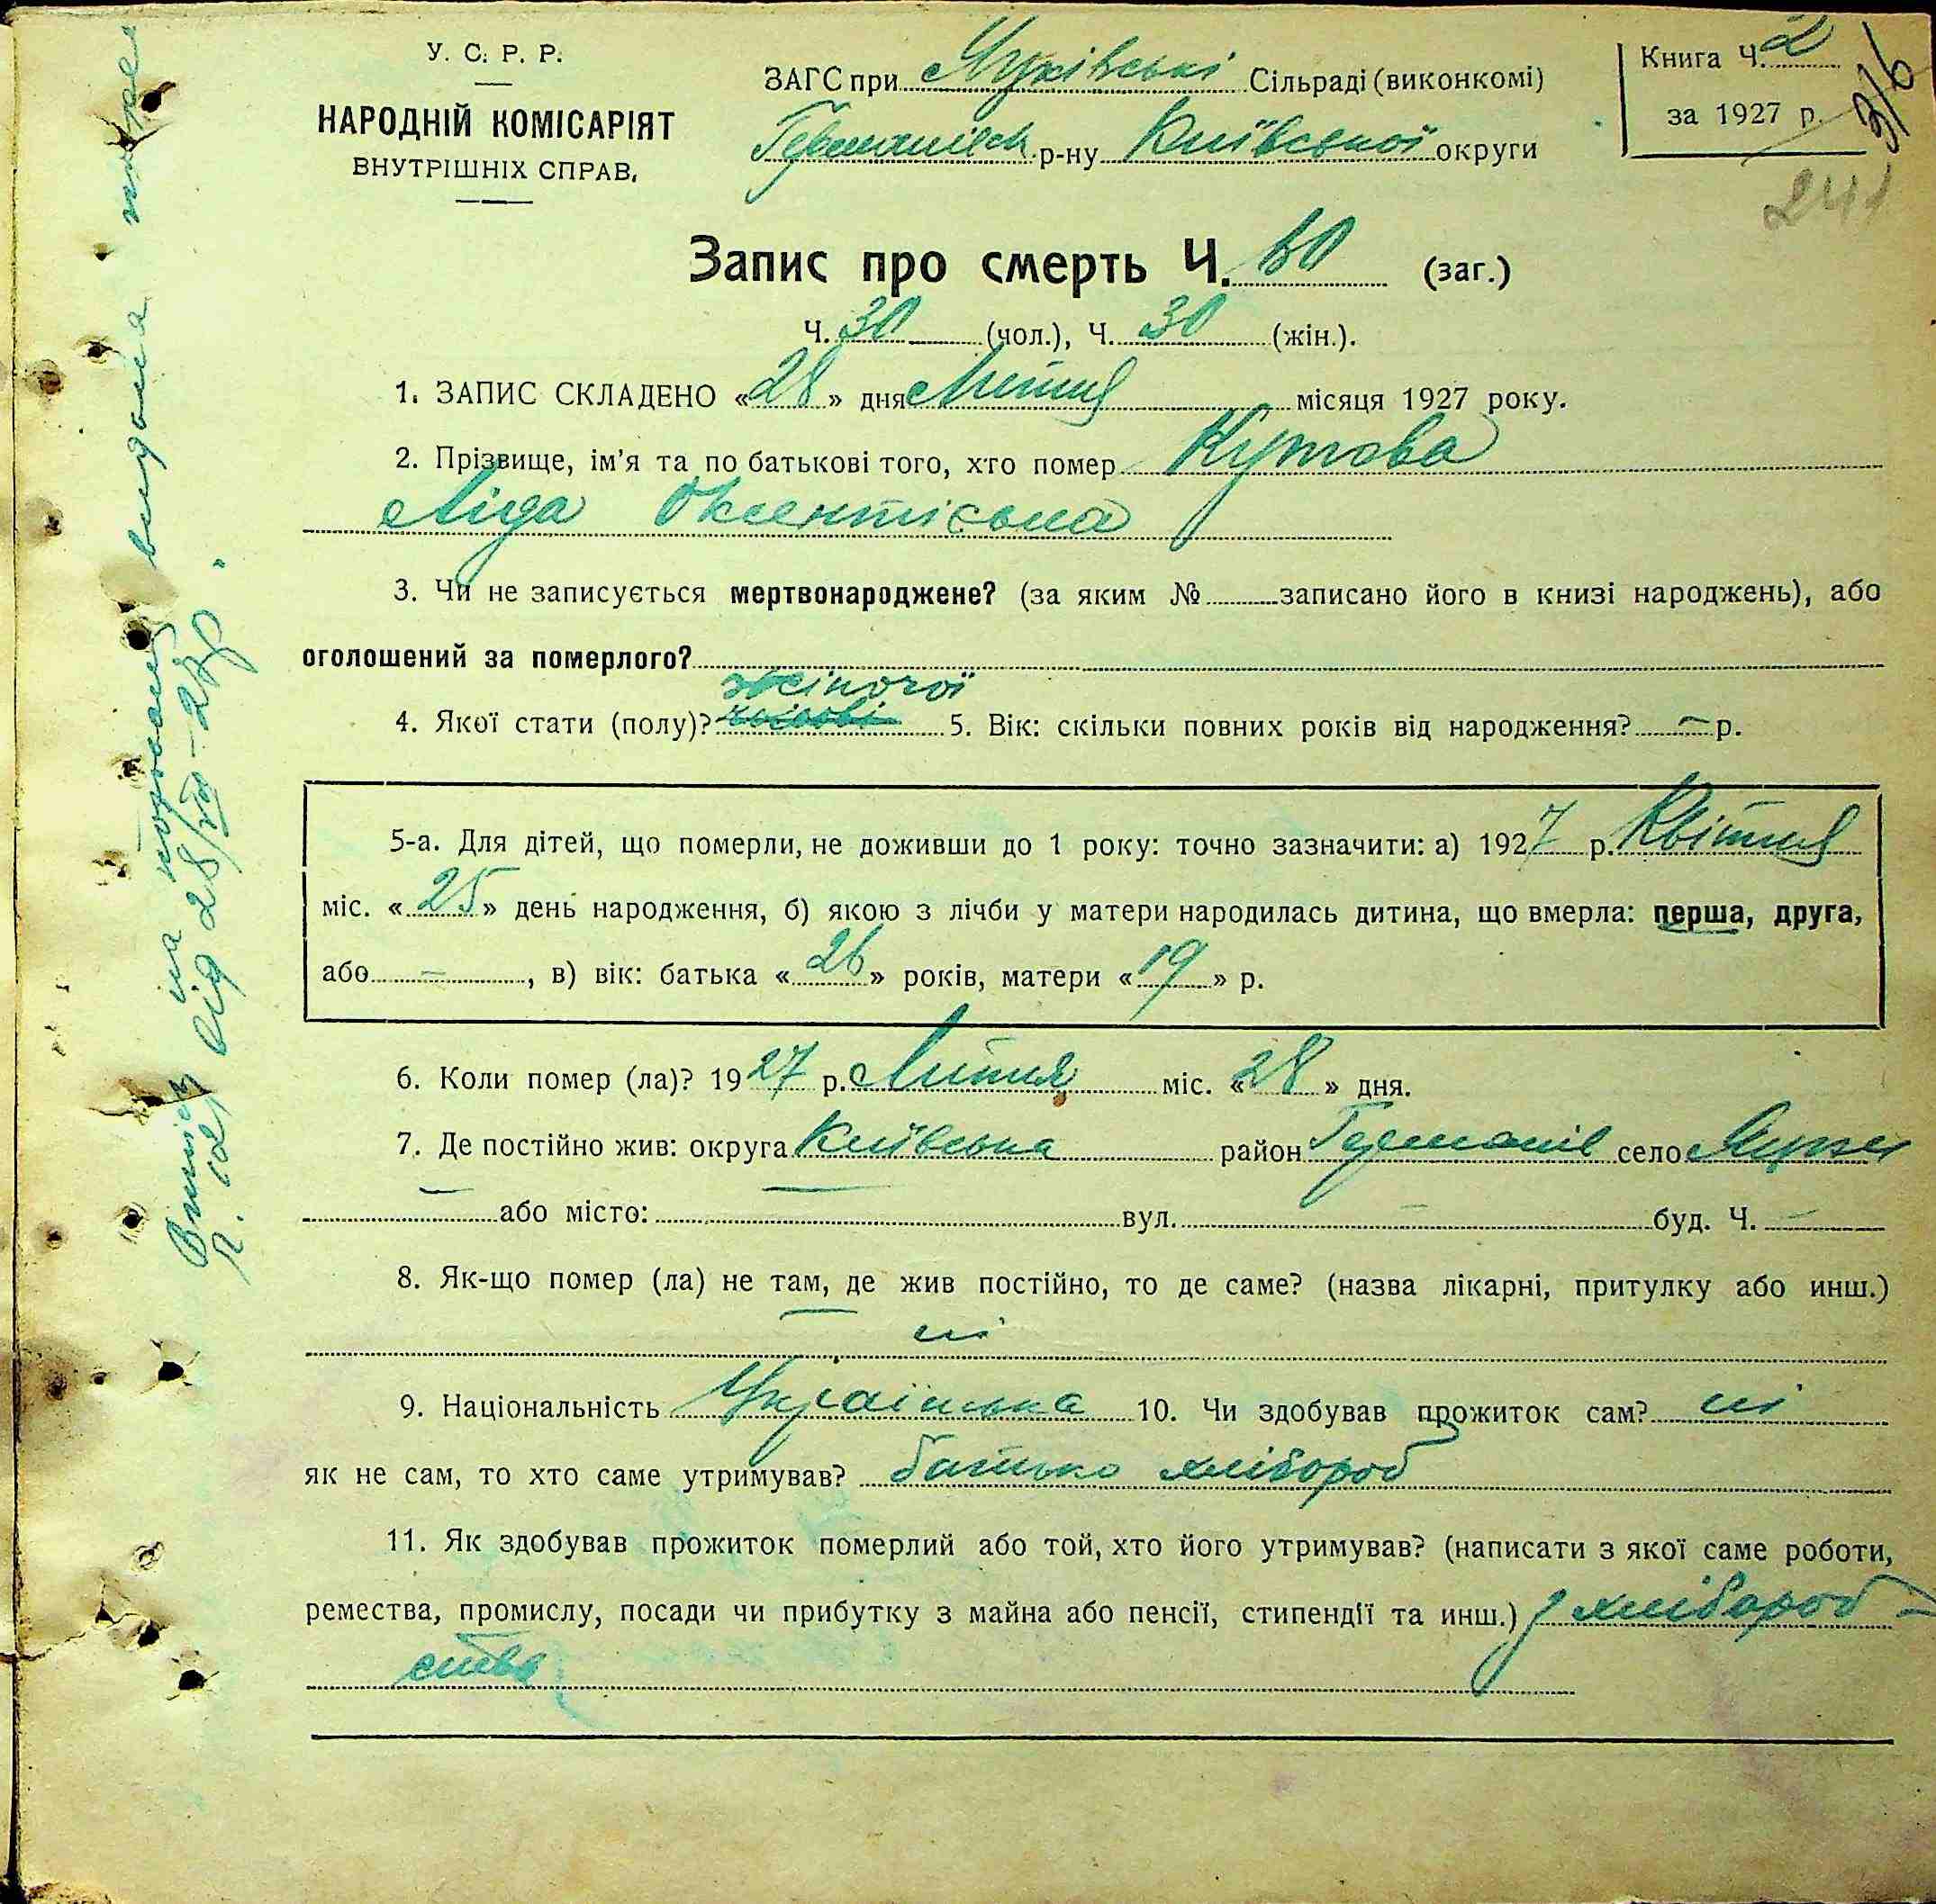 У. С. Р. Р.
НАРОДНІЙ КОМІСАРІЯТ
ВНУТРІШНІХ СПРАВ.
ЗАГС при Яцківські Сільраді (виконкомі)
Германівськ. р-ну Київської округи
Книга Ч. 2
за 1927 р.
316
241
Запис про смерть Ч. 60 (заг.)
Ч. 30 (чол.), Ч. 30 (жін.).
1. ЗАПИС СКЛАДЕНО «28» дня Липня місяця 1927 року.
2. Прізвище, ім'я та по батькові того, хто помер Кутова
Ліда Оксентісьна
3. Чи не записується мертвонароджене? (за яким № записано його в книзі народжень), або
оголошений за померлого?
жіночої
4. Якої стати (полу)? 5. Вік: скільки повних років від народження? – р.
5-а. Для дітей, що померли, не доживши до 1 року: точно зазначити: а) 1927 р. Квітня
міс. «25» день народження, б) якою з лічби у матери народилась дитина, що вмерла: перша, друга,
або –, в) вік: батька «26» років, матери «19» р.
6. Коли помер (ла)? 1927 р. Липня міс. «28» дня.
7. Де постійно жив: округа Київська район Германів село
– або місто: – вул. – буд. Ч. –
8. Як-що помер (ла) не там, де жив постійно, то де саме? (назва лікарні, притулку або инш.)
ні
9. Національність Українська 10. Чи здобував прожиток сам? ні
як не сам, то хто саме утримував? батько хлібороб
11. Як здобував прожиток померлий або той, хто його утримував? (написати з якої саме роботи,
ремества, промислу, посади чи прибутку з майна або пенсії, стипендії та инш.) з хлібороб-
ства
видана
на
від 28/VII–27р.